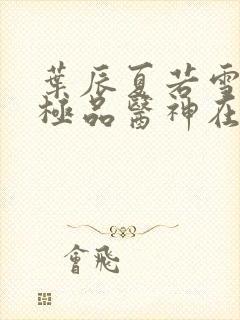 葉辰夏若雪
極品醫神在
會飛